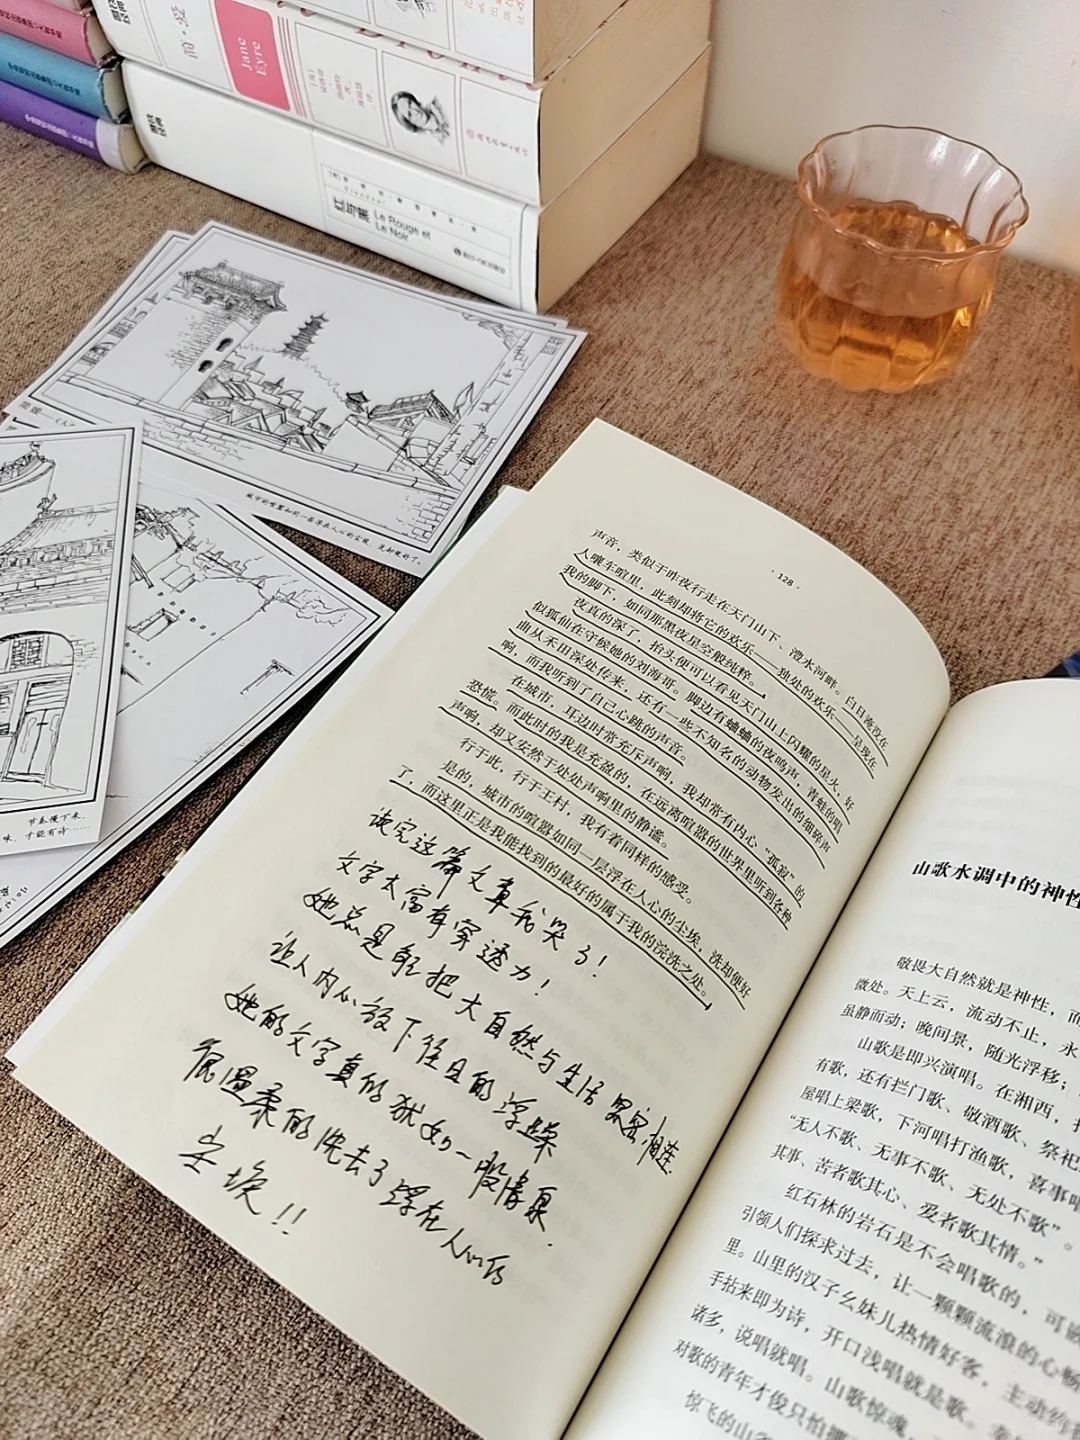 简·爱
Jane
Eyre
红与黑
城市的喧嚣如同一层浮在人心的尘埃,洗却便好了。
节奏慢下来,
味,才能有诗……
·128·
声音,类似于昨夜行走在天门山下、澧水河畔。白日淹没在
人嚷车喧里,此刻却将它的欢乐——独处的欢乐——呈现在
我的脚下,如同那黑夜星空般纯粹。
夜真的深了,抬头便可以看见天门山上闪耀的星火,好
似狐仙在守候她的刘海哥。脚边有蛐蛐的夜鸣声,青蛙的唱
曲从禾田深处传来,还有一些不知名的动物发出的细碎声
响,而我听到了自己心跳的声音。
在城市,耳边时常充斥声响,我却常有内心“孤寂”的
恐慌。而此时的我是充盈的,在远离喧嚣的世界里听到各种
声响,却又安然于处处声响里的静谧。
行于此,行于王村,我有着同样的感受。
是的,城市的喧嚣如同一层浮在人心的尘埃,洗却便好
了,而这里正是我能找到的最好的属于我的浣洗之处。
读完这篇文章我哭了!
文字太富有穿透力!
她总是能把大自然与生活紧密相连
让人内心放下往日的浮躁
她的文字真的犹如一股清泉.
很温柔的洗去了浮在人心的
尘埃!!
山歌水调中的神性
敬畏大自然就是神性,而
微处。天上云,流动不止,永
虽静而动;晚间景,随光浮移;
山歌是即兴演唱。在湘西,
有歌,还有拦门歌、敬酒歌、祭祀
屋唱上梁歌,下河唱打渔歌,喜事唱
“无人不歌、无事不歌、无处不歌”。
其事、苦者歌其心、爱者歌其情。”
红石林的岩石是不会唱歌的,可
引领人们探求过去,让一颗颗流浪的心畅
里。山里的汉子幺妹儿热情好客,主动约
手拈来即为诗,开口浅唱就是歌。
诸多,说唱就唱。山歌惊魂,
对歌的青年才俊只怕
惊飞的山雀